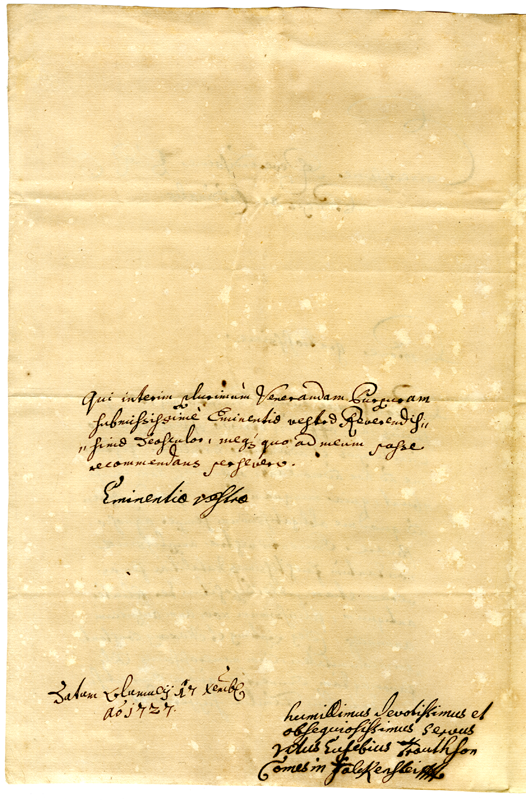 Qui interim plurimùm Venerandam Purpuram
submississimè Eminentiæ vestræ Reverendis„
„simæ deosculor, meq3 quo ad meum posse
recommendans persevero.
Eminentiæ vestræ
Datum Olomucij 17 Xembr̄
aō 1727.
humillimus devotissimus et
obsequiosissimus servus
Vitus Eusebius Trauthson
Comes in Falckenstein